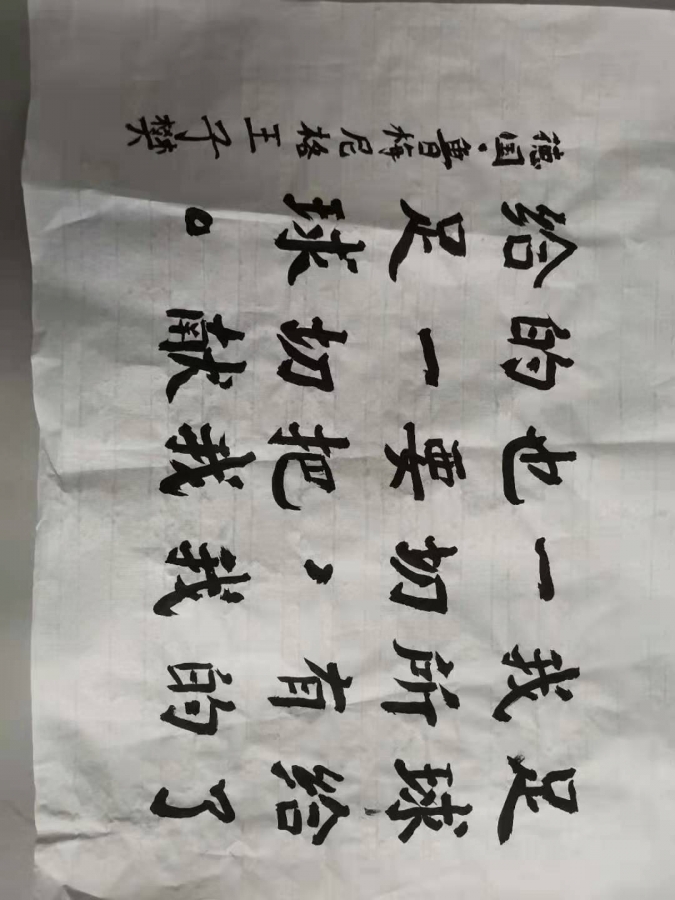 足球给了
我所有的
一切，我
也要把我
的一切献
给足球。
德国·鲁梅尼格王子樊